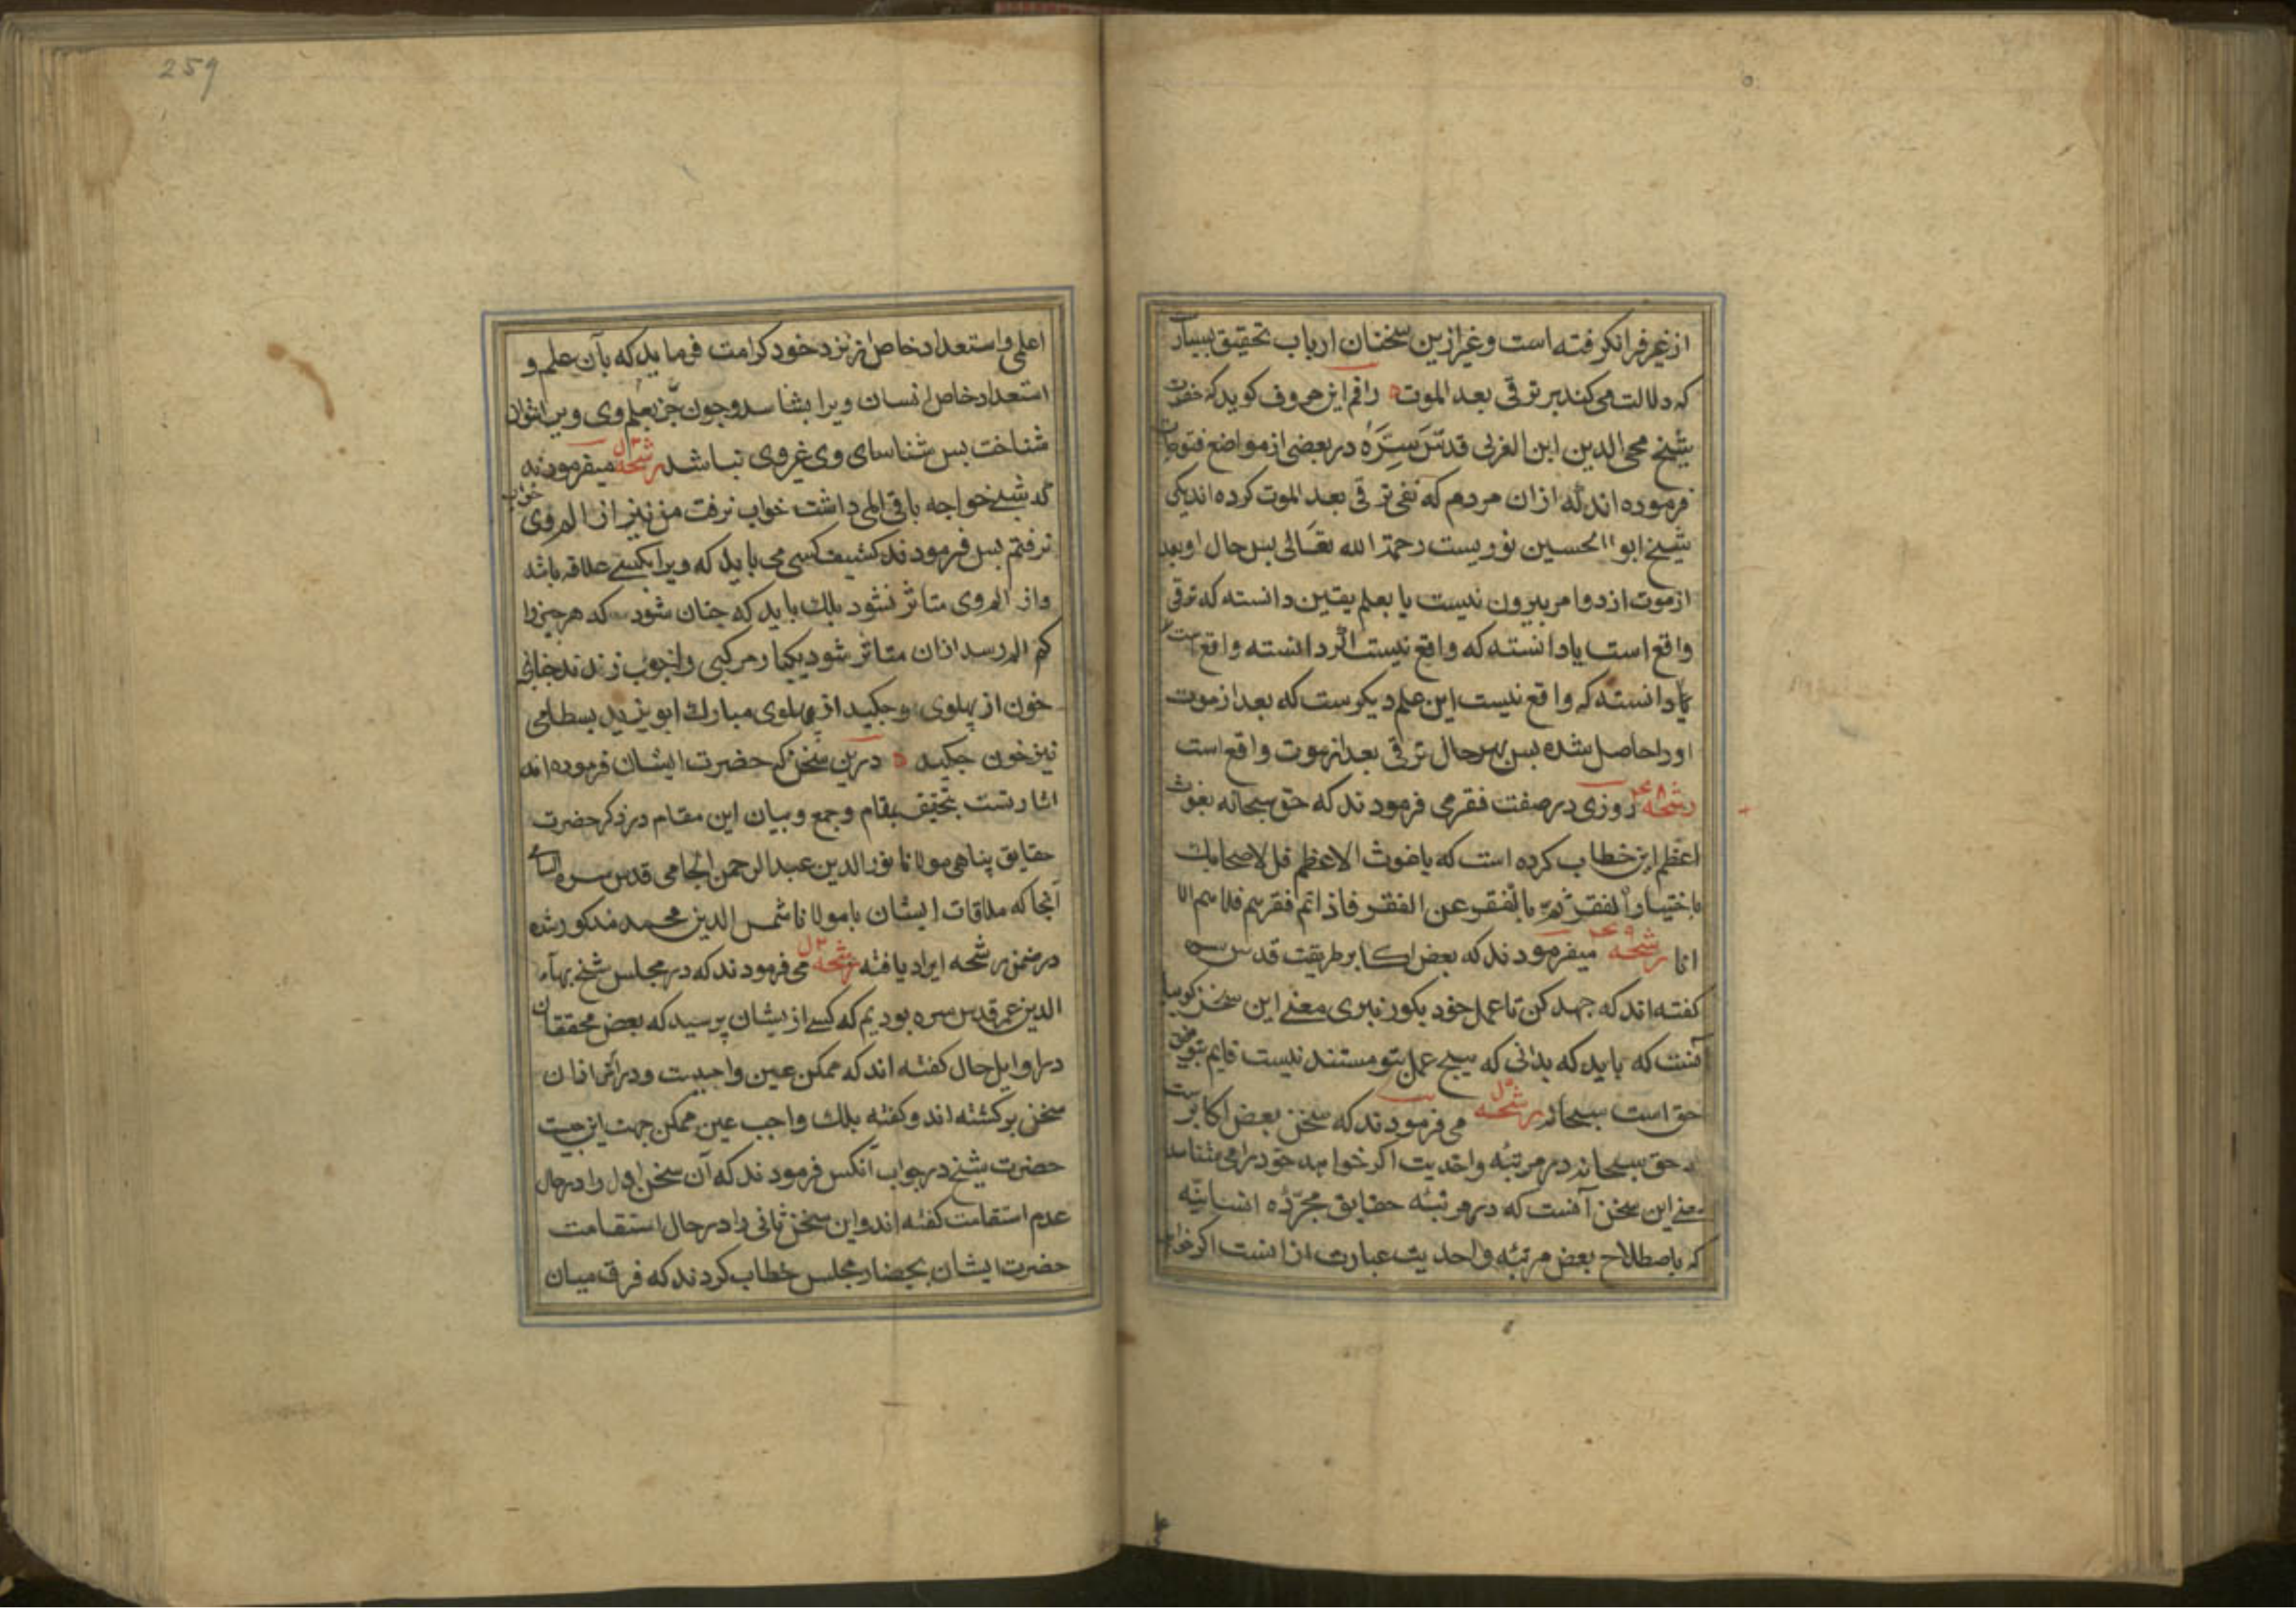 از غیر فرانکرفته است و غیر ازین سخنان ارباب تحقیق بسیار
که دلالت می کند بر ترقی بعد الموت راقم این حروف کوید که حضرت
شیخ محی الدین ابن العربی قدس سره در بعضی از مواضع فتوحات
فرموده اند که ازان مردم که نفی ترقی بعد الموت کرده اند یکی
شیخ ابو الحسین نوریست رحمة الله تعالی بس حال او بعد
ازموت از دو امر بیرون نیست یا بعلم یقین دانسته که ترقی
واقع است یا دانسته که واقع نیست اکر دانسته واقع است
یا دانسته که واقع نیست این علم دیکرست که بعد از موت
اورا حاصل شده بس بهر حال ترقی بعد از موت واقع است
رشحه ۲۴۸ روزی در صفت فقر می فرمودند که حق سبحانه بغوث
اعظم این خطاب کرده است که یا غوث الاعظم قل لاصحابک
باختیار الفقر ثم بالفقر عن الفقر فاذا تم فقرهم فلا هم الا
انا رشحه ۲۴۹ میفرمودند که بعض اکابر طریقت قدس سره
کفته اند که جهد کن تا عمل خود بکور نبری معنی این سخن کوییا
آنست که باید که بدانی که هیج عمل بتو مستند نیست قایم بتوفیق
حق است سبحانه رشحه می فرمودند که سخن بعض اکابرست
که حق سبحانه در مرتبه واحدیت اکر خواهد خود را می شناسد
معنی این سخن آنست که در مرتبه حقایق مجرّده انسانیّه
که باصطلاح بعض مرتبه واحدیت عبارت ازانست اکر خواهد
259
اعلمی و استعداد خاص از نزد خود کرامت فرماید که بآن علم و
استعداد خاص انسان ویرا بشناسد و جون جز بعلم وی ویرا نتوان
شناخت بس شناسای وی غیر وی نباشد رشحه میفرمودند
که شبی خواجه باقی المی داشت خواب نرفت من نیز از الم وی خواب
نرفتم بس فرمودند کثیف کسی می باید که ویرا بکسی علاقه باشد
و از الم وی متاثر نشود بلک باید که جنان شود که هر جیز را
که الم رسد ازان متاثر شود یکبار مرکبی را جوب زدند جنانی
خون از بهلوی و جکید از بهلوی مبارک ابو یزید بسطامی
نیز خون جکید درین سخن که حضرت ایشان فرموده اند
اشارتست بتحقیق بمقام و جمع و بیان این مقام در ذکر حضرت
حقایق بناهی مولانا نور الدین عبد الرحمن الجامی قدس سره السامی
آنجا که ملاقات ایشان با مولانا شمس الدین محمد مذکور شده
در ضمن رشحه ایراد یافته رشحه می فرمودند که در مجلس شیخ بهاء
الدین عمر قدس سره بودیم که کسی از یشان پرسید که بعض محققان
در اوایل حال کفته اند که ممکن عین واجبست و در آخر ازان
سخن برکشته اند و کفته بلک واجب عین ممکن جهت این جیست
حضرت شیخ در جواب آنکس فرمودند که آن سخن اول را در حال
عدم استقامت کفته اند و این سخن ثانی را در حال استقامت
حضرت ایشان بحضار مجلس خطاب کردند که فرق میان